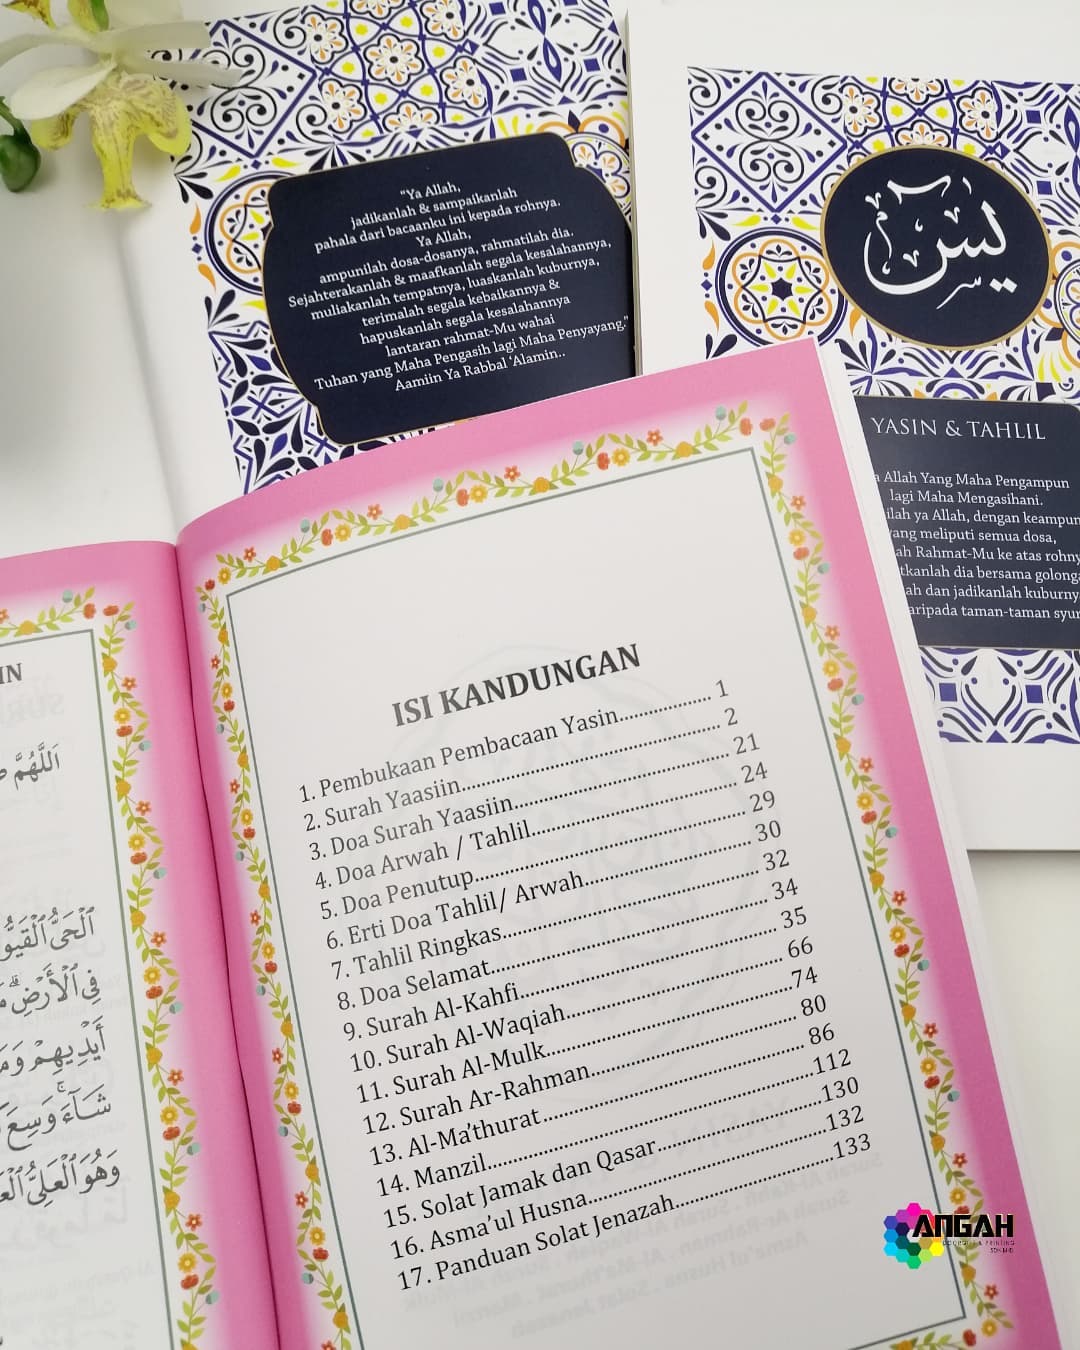 "Ya Allah,
jadikanlah & sampaikanlah
pahala dari bacaanku ini kepada rohnya.
Ya Allah,
ampunilah dosa-dosanya, rahmatilah dia.
Sejahterakanlah & maafkanlah segala kesalahannya,
muliakanlah tempatnya, luaskanlah kuburnya,
terimalah segala kebaikannya &
hapuskanlah segala kesalahannya
lantaran rahmat-Mu wahai
Tuhan yang Maha Pengasih lagi Maha Penyayang."
Aamiin Ya Rabbal 'Alamin..
يس
YASIN & TAHLIL
Allah Yang Maha Pengampun
lagi Maha Mengasihani.
ya Allah, dengan
meliputi semua dosa,
Rahmat-Mu ke atas
dia bersama
dan jadikanlah
taman-taman
اَللّٰهُمَّ
ٱلْحَىُّ
فِى ٱلْأَرْضِ
أَيْدِيهِمْ
شَآءَ وَسِعَ
وَهُوَ ٱلْعَلِىُّ
ISI KANDUNGAN
1. Pembukaan Pembacaan Yasin.................. 1
2. Surah Yaasiin.................. 2
3. Doa Surah Yaasiin.................. 21
4. Doa Arwah / Tahlil.................. 24
5. Doa Penutup.................. 29
6. Erti Doa Tahlil/ Arwah.................. 30
7. Tahlil Ringkas.................. 32
8. Doa Selamat.................. 34
9. Surah Al-Kahfi.................. 35
10. Surah Al-Waqiah.................. 66
11. Surah Al-Mulk..................74
12. Surah Ar-Rahman.................. 80
13. Al-Ma'thurat.................. 86
14. Manzil..................112
15. Solat Jamak dan Qasar..................130
16. Asma'ul Husna..................132
17. Panduan Solat Jenazah..................133
ANGAH